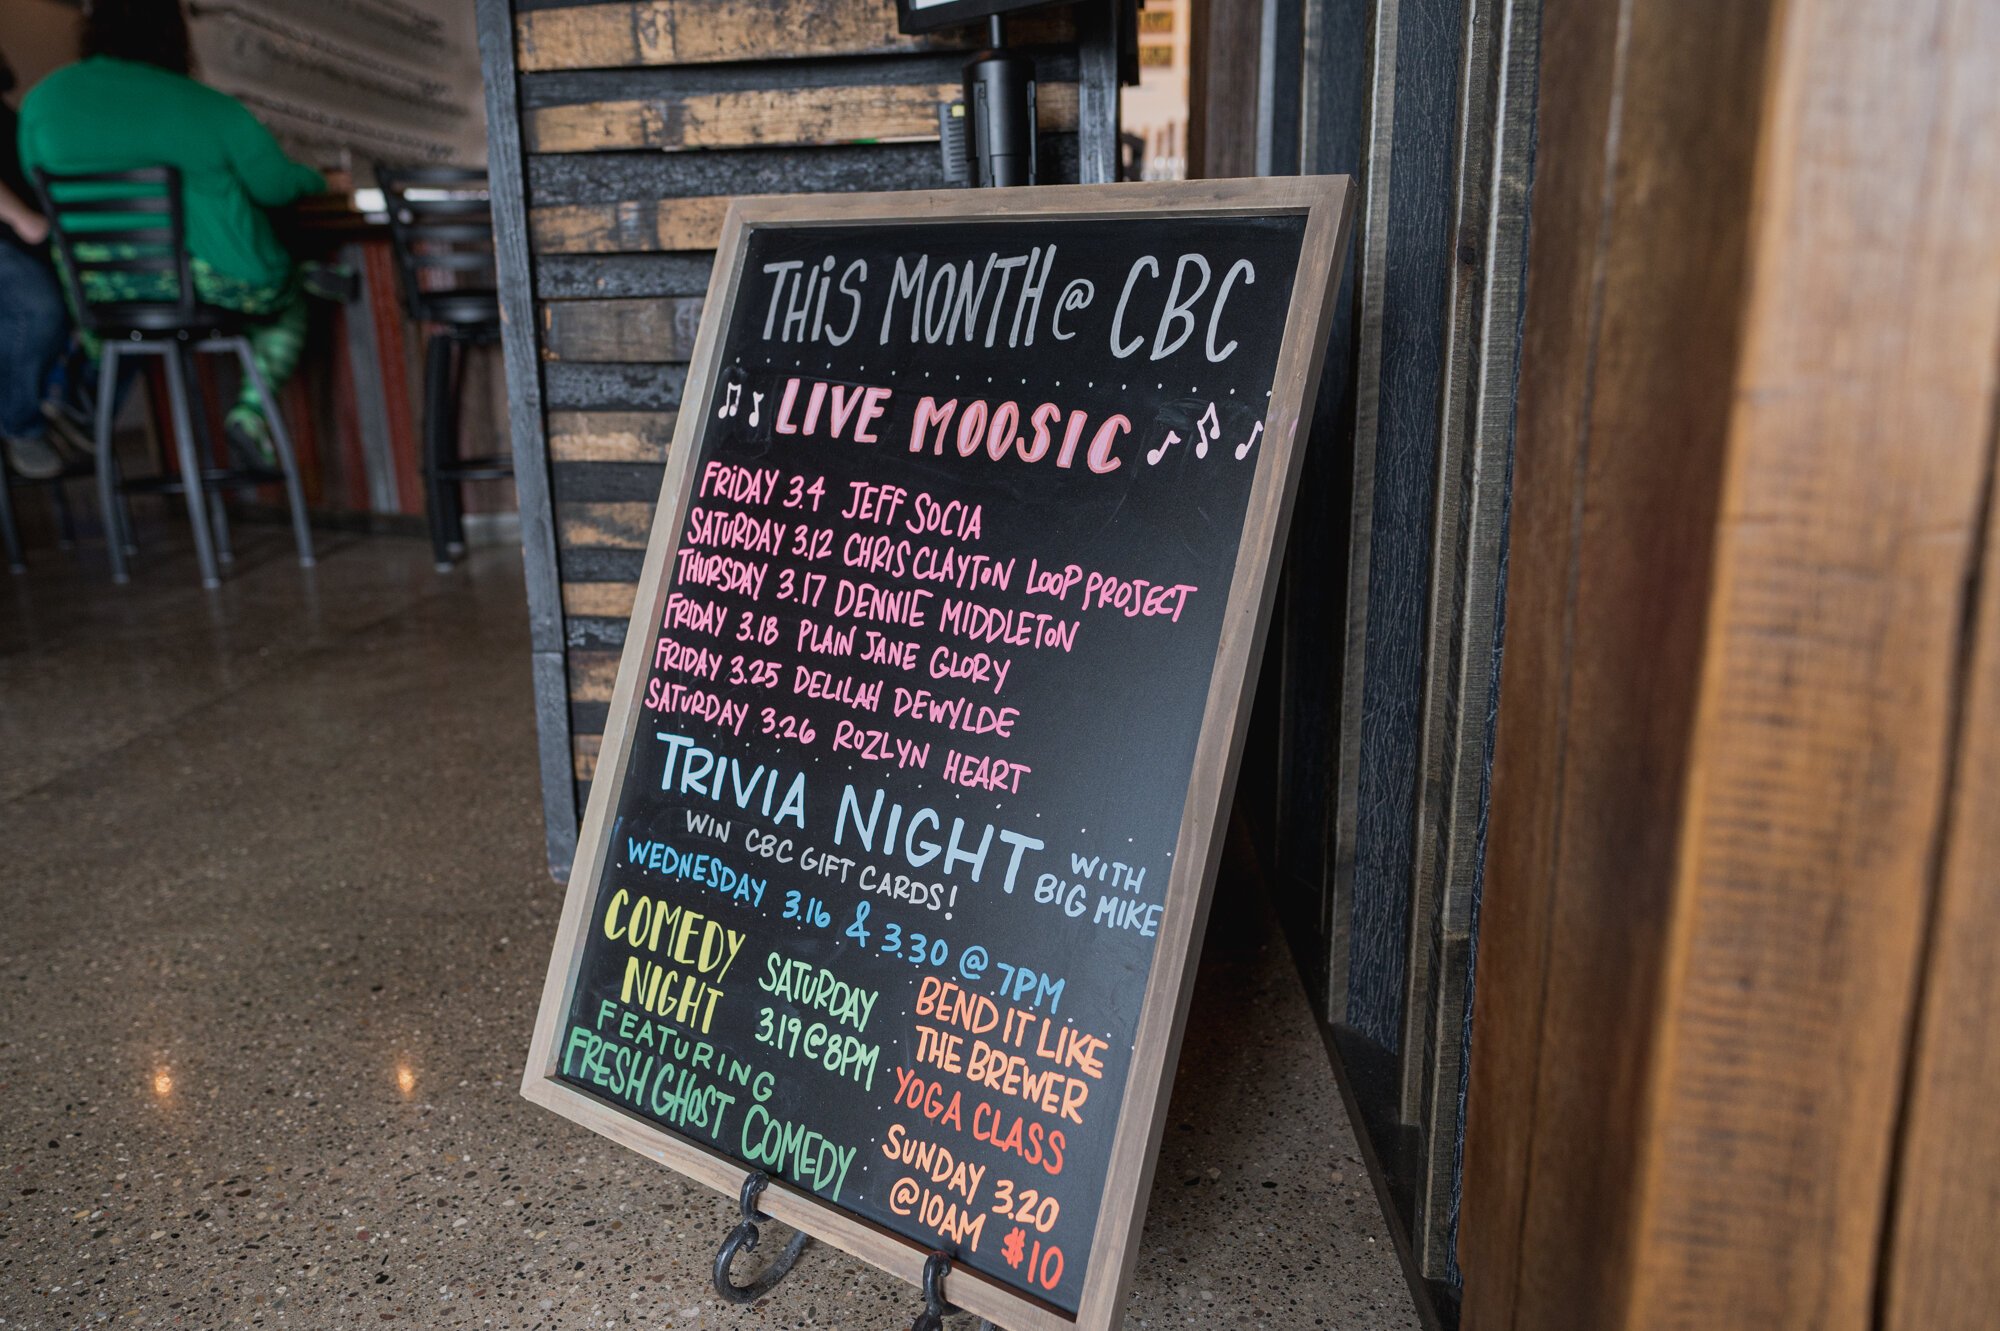 THIS MONTH @ CBC
LIVE MOOSIC
FRIDAY 3.4 JEFF SOCIA
SATURDAY 3.12 CHRIS CLAYTON LOOP PROJECT
THURSDAY 3.17 DENNIE MIDDLETON
FRIDAY 3.18 PLAIN JANE GLORY
FRIDAY 3.25 DELILAH DEWYLDE
SATURDAY 3.26 ROZLYN HEART
TRIVIA NIGHT WITH
BIG MIKE
WIN CBC GIFT CARDS!
WEDNESDAY 3.16 & 3.30 @ 7PM
COMEDY
NIGHT
FEATURING
FRESH GHOST COMEDY
SATURDAY
3.19 @ 8PM
BEND IT LIKE
THE BREWER
YOGA CLASS
SUNDAY 3.20
@ 10AM $10